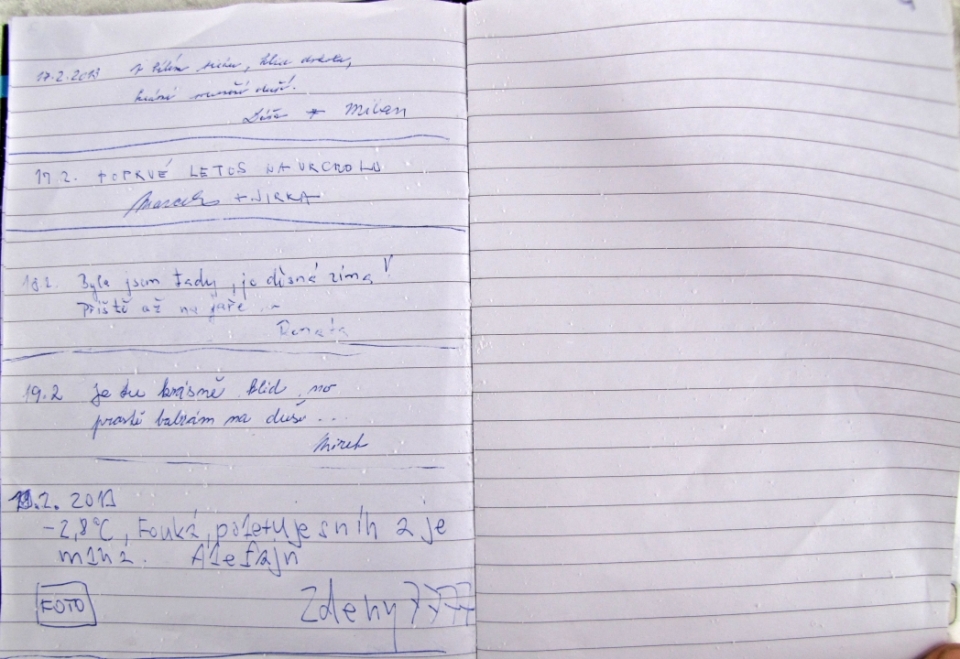 17.2.2013
Milan
17.2. POPRVÉ LETOS NA VRCHOLU
Marcela + JIRKA
18.2. Byla jsem tady, je děsná zima!
Příště až na jaře
Renata
19.2 Je tu krásně klid no
prostě balzám na duši ...
Mirek
19.2. 2013
-2,8°C, Fouká, poletuje sníh a je
mlha. Ale fajn
FOTO
Zdeny7777